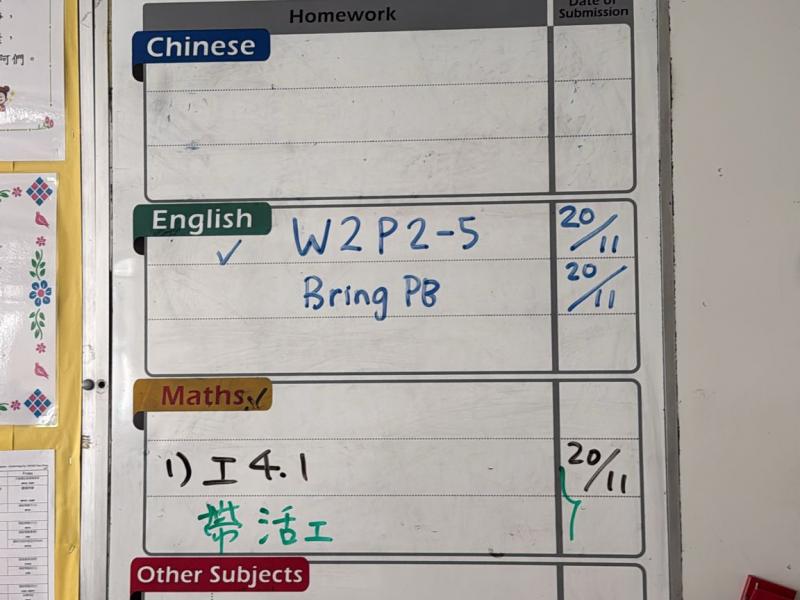 Homework
Date of Submission
Chinese
English
W2 P2-5 20/11
Bring PB 20/11
Maths
1) 工 4.1 20/11
帶 活工
Other Subjects
阿們。
Friday